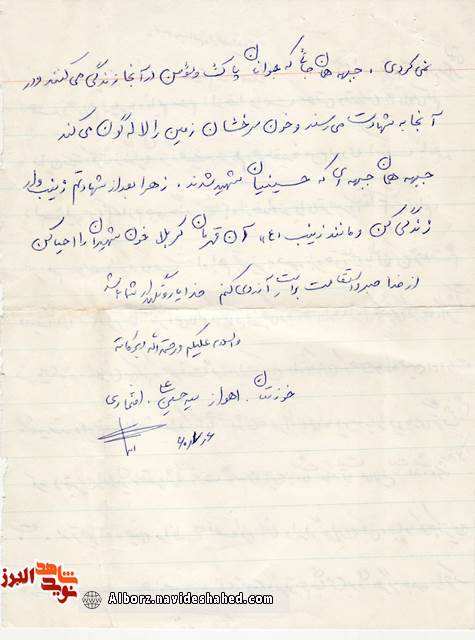 نمی‌کردی. جبهه همان جائی که جوانان پاک و مؤمن در آنجا زندگی می‌کنند و در
آنجا به شهادت می‌رسند و خون سرخشان زمین را لاله‌گون می‌کند
جبهه همان جبهه‌ای که حسینیان شهید شدند. زهرا بعد از شهادتم زینب‌وار
زندگی کن و مانند زینب «ع» آن قهرمان کربلا خون شهیدان را احیا کن
از خدا صبر و استقامت برایت آرزو می‌کنم خدا یار و نگهدار شما باشد
والسلام علیکم و رحمة الله و برکاته
خوزستان. اهواز سید حسین افتخاری
شاهد
نوید
البرز
Alborz.navideshahed.com